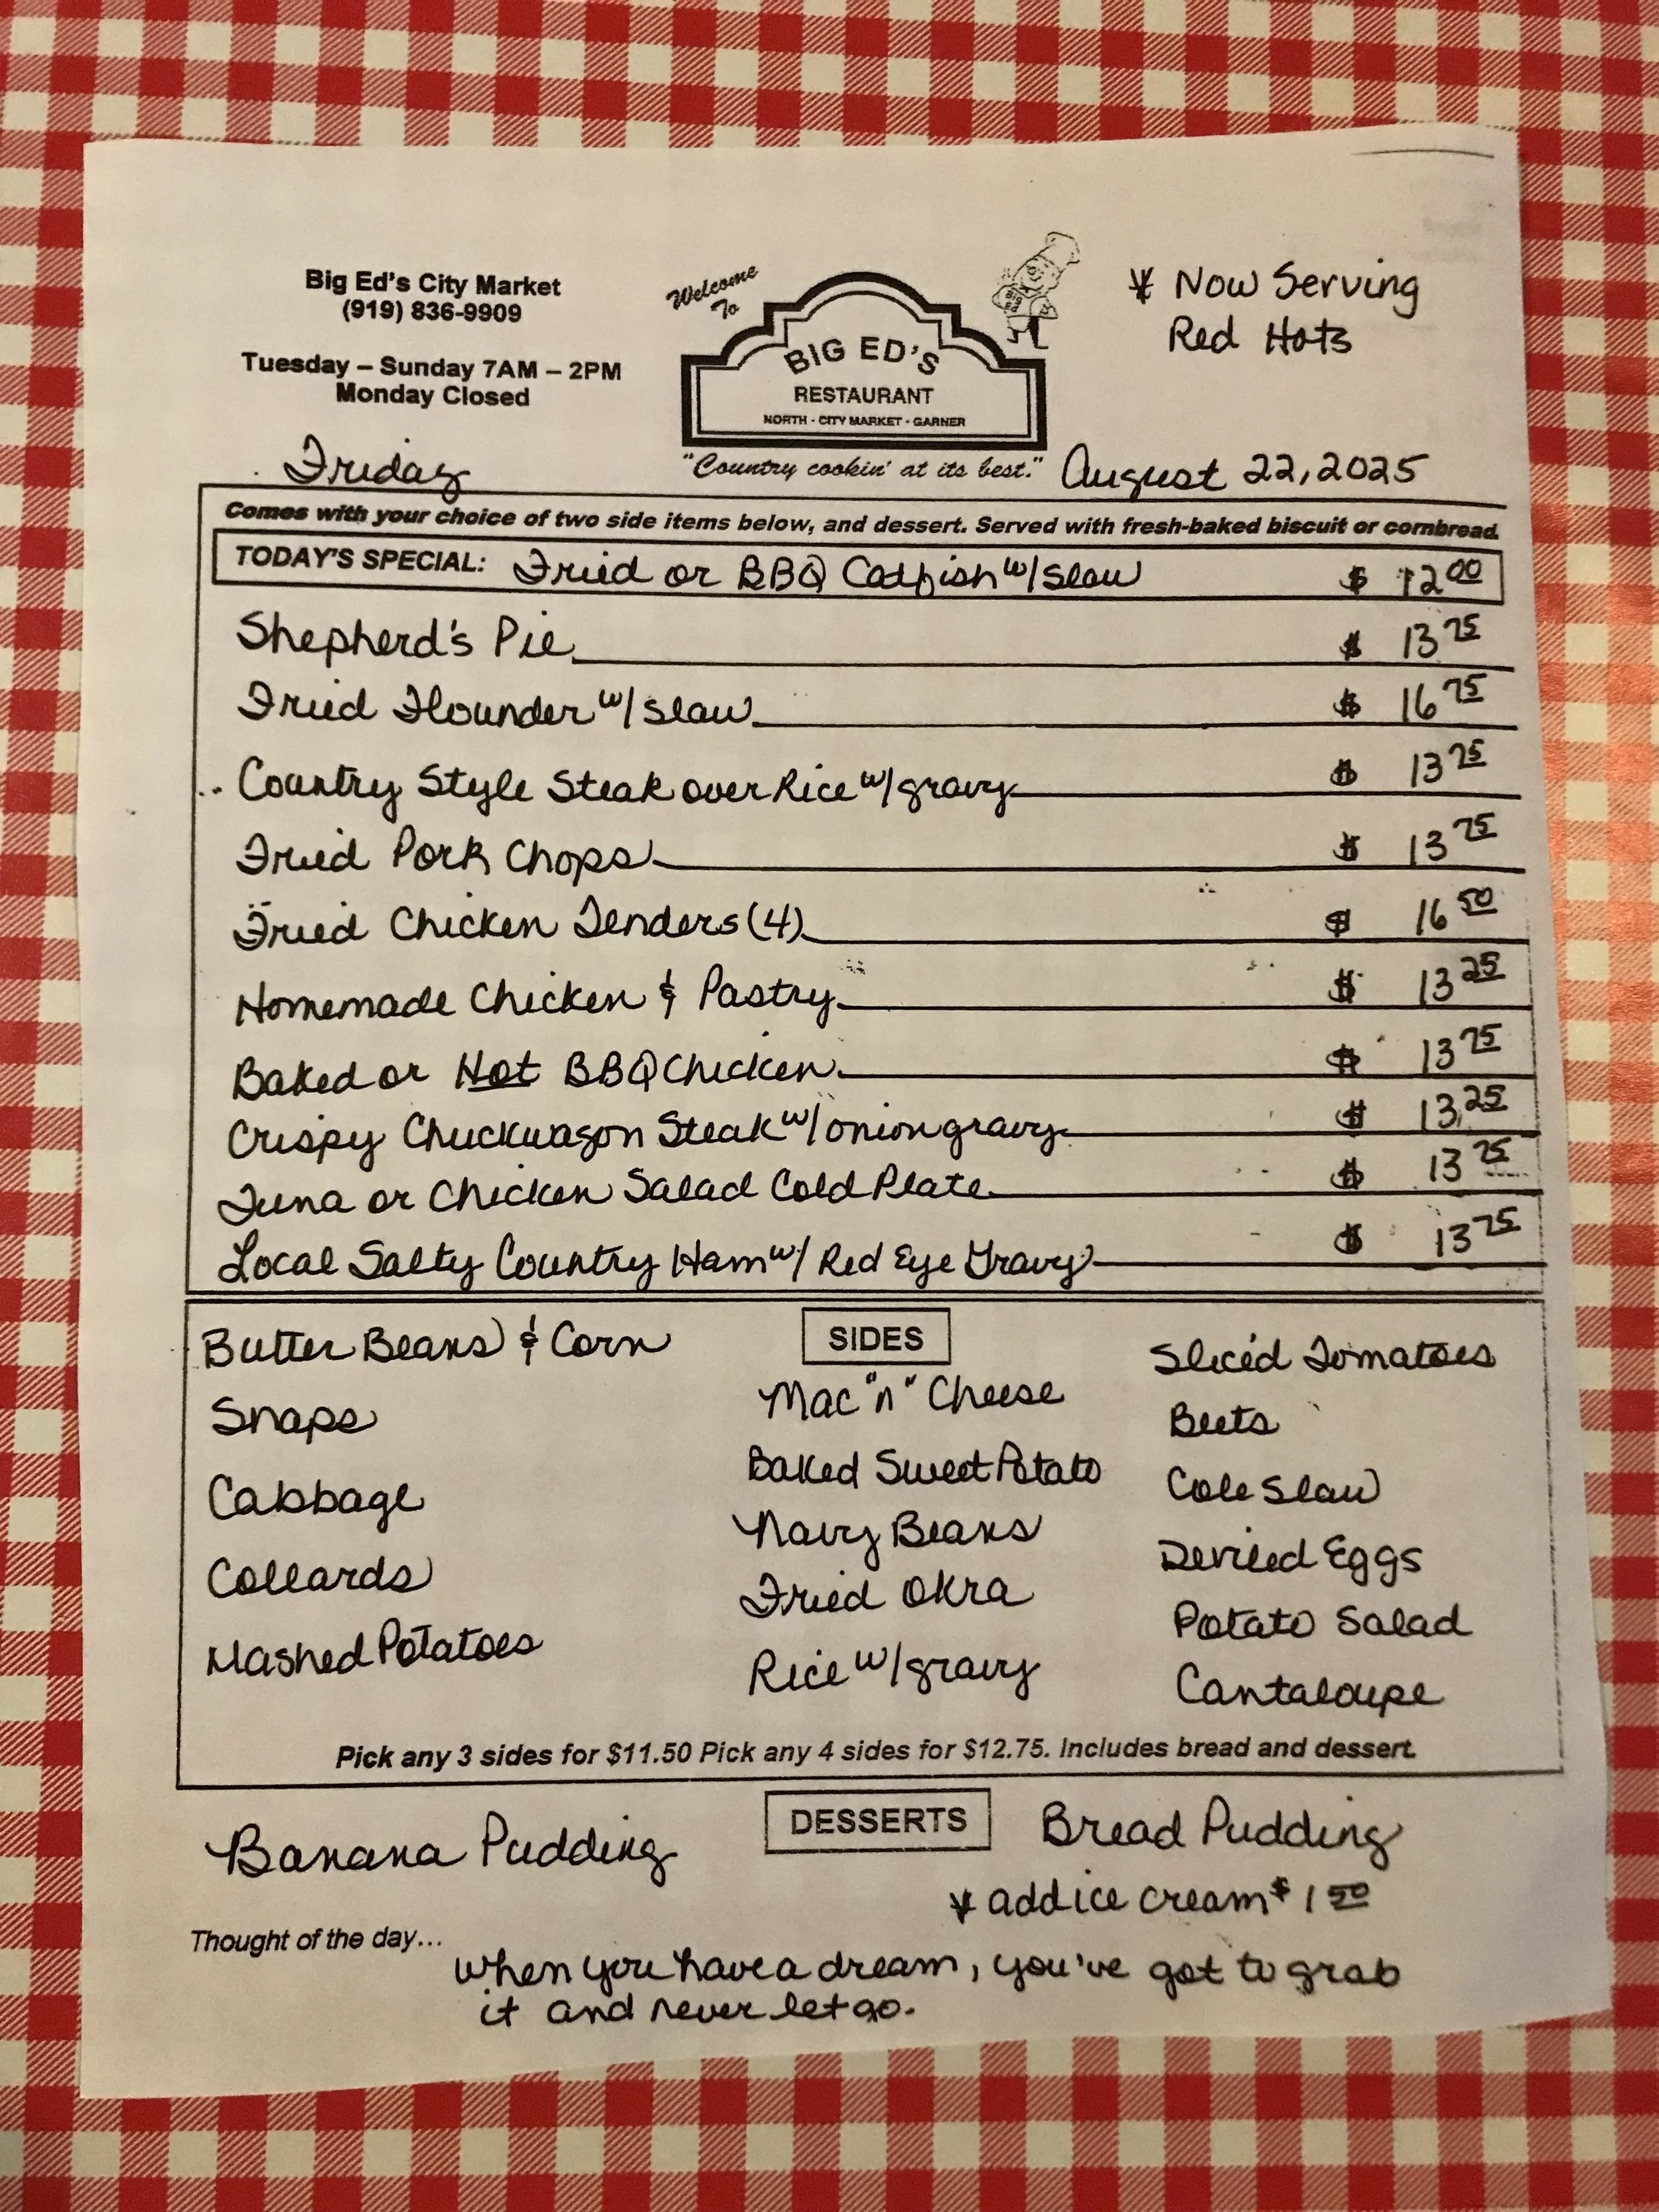 Big Ed's City Market
(919) 836-9909
Tuesday – Sunday 7AM – 2PM
Monday Closed
Welcome
To
BIG ED'S
RESTAURANT
NORTH - CITY MARKET - GARNER
"Country cookin' at its best."
* Now Serving
Red Hots
Friday
August 22, 2025
Comes with your choice of two side items below, and dessert. Served with fresh-baked biscuit or cornbread.
TODAY'S SPECIAL: Fried or BBQ Catfish w/ slaw $ 12 00
Shepherd's Pie $ 13 75
Fried Flounder w/ slaw $ 16 75
Country Style Steak over Rice w/ gravy $ 13 75
Fried Pork Chops $ 13 75
Fried Chicken Tenders (4) $ 16 50
Homemade Chicken & Pastry $ 13 25
Baked or Hot BBQ Chicken $ 13 75
Crispy Chuckwagon Steak w/ onion gravy $ 13 25
Tuna or Chicken Salad Cold Plate $ 13 75
Local Salty Country Ham w/ Red Eye Gravy $ 13 75
SIDES
Butter Beans & Corn
Snaps
Cabbage
Collards
Mashed Potatoes
Mac "n" Cheese
Baked Sweet Potato
Navy Beans
Fried Okra
Rice w/ gravy
Sliced Tomatoes
Beets
Cole Slaw
Deviled Eggs
Potato Salad
Cantaloupe
Pick any 3 sides for $11.50 Pick any 4 sides for $12.75. Includes bread and dessert.
DESSERTS
Banana Pudding
Bread Pudding
* add ice cream $ 1 50
Thought of the day...
when you have a dream, you've got to grab
it and never let go.